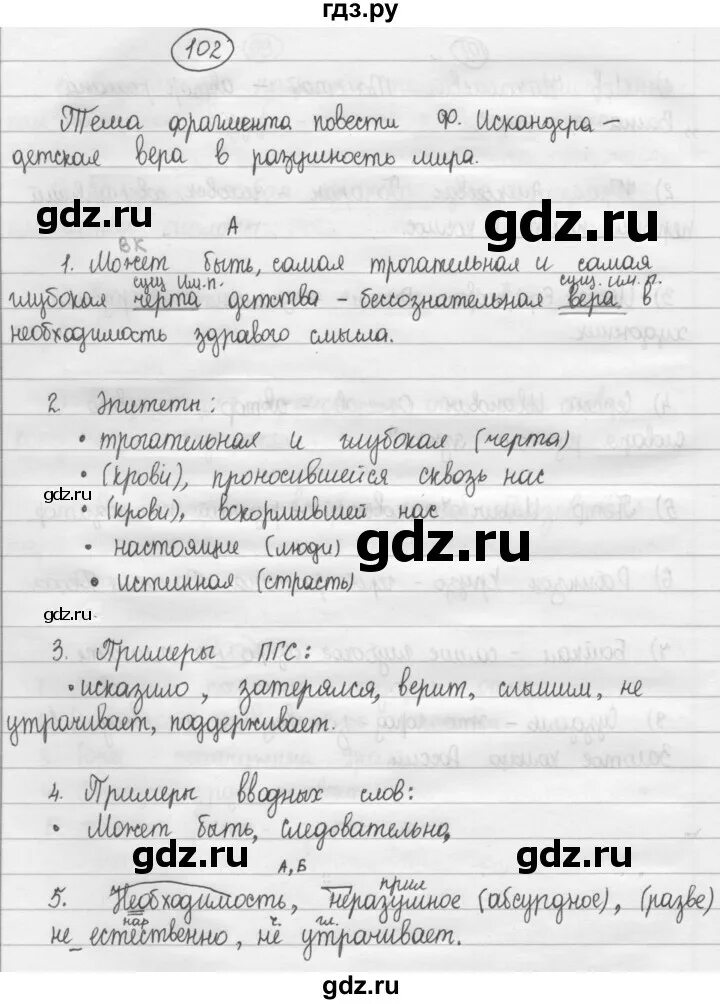 гдз.ру
102
Тема фрагмента повести Ф. Искандера –
детская вера в разумность мира.
gdz.ru
А
вк
1. Может быть, самая трогательная и самая
сущ. им.п. сущ. им.п.
глубокая черта детства – бессознательная вера в
необходимость здравого смысла.
2 Эпитеты:
• трогательная и глубокая (черта)
• (крови), проносившейся сквозь нас
gdz.ru
• (крови), вскормившей нас
gdz.ru
• настоящие (люди)
• истинная (страсть)
gdz.ru
3. Примеры ПГС:
• исказило, затерялся, верит, слышим, не
утрачивает, поддерживает.
4. Примеры вводных слов:
• Может быть, следовательно,
gdz.ru
gdz.ru
А, Б
прил
5. Необходимость, неразумное (абсурдное), (разве)
нар ч. гл.
не_естественно, не утрачивает.
gdz.ru